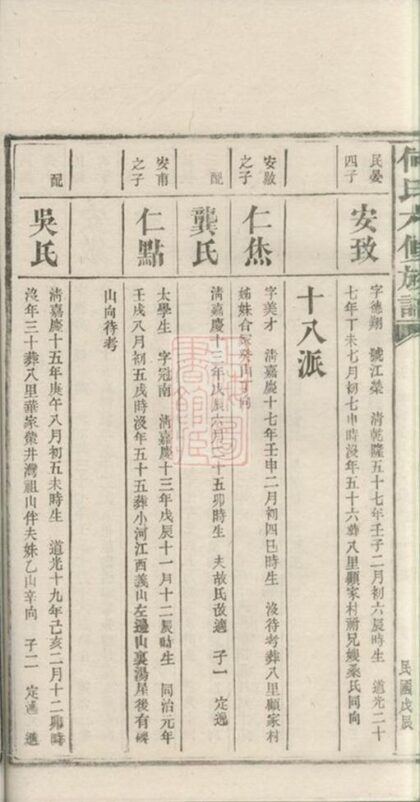 何氏六修族譜
民國戊辰
民晏四子
安致
字德翔 號江榮 清乾隆五十七年壬子二月初六辰時生 道光二十
七年丁未七月初七申時沒年五十六葬八里顧家村祔兄嫂桑氏同向
十八派
安敏之子
仁焦
字美才 清嘉慶十七年壬申二月初四巳時生 沒待考葬八里顧家村
姊妹合冢癸山丁向
配
龔氏
清嘉慶十三年戊辰六月二十五卯時生 夫故氏改適 子一 定選
安南之子
仁點
太學生 字冠南 清嘉慶十三年戊辰十一月十二辰時生 同治元年
壬戌八月初五戌時沒年五十五葬小河江西義山左邊山裏湯屋後有碑
山向待考
配
吳氏
清嘉慶十五年庚午八月初五未時生 道光十九年己亥二月十二卯時
沒年三十葬八里華家坐井灣祖山伴夫妹乙山辛向 子二 定